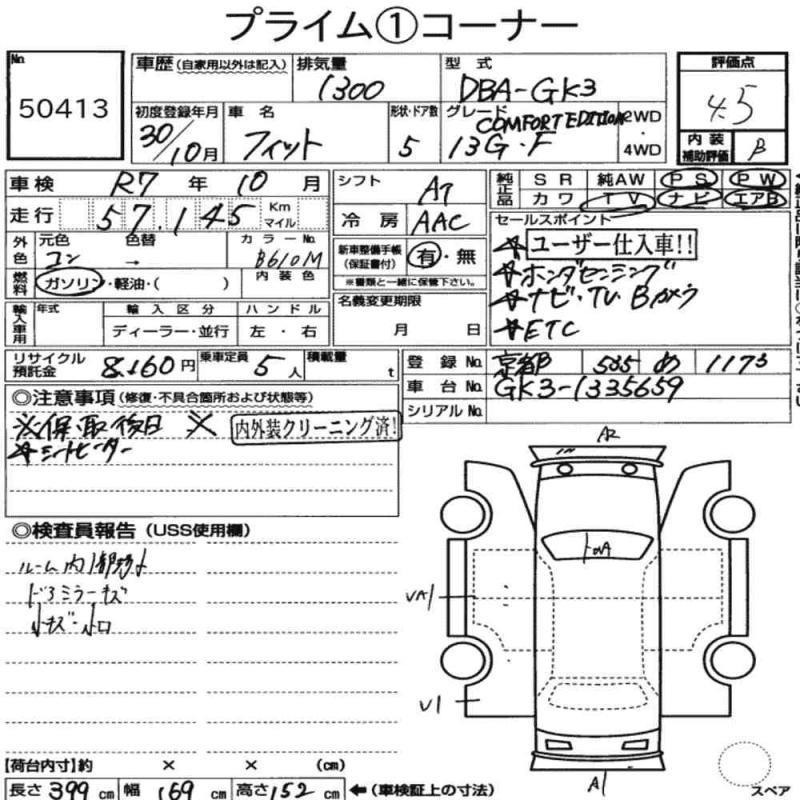 プライム①コーナー
No. 50413
車歴(自家用以外は記入) 排気量 1300 型式 DBA-GK3 評価点 4.5
初度登録年月 30/10月 車名 フィット 形状・ドア数 5 グレード COMFORT EDITION 13G・F 2WD・4WD 内装補助評価 B
車検 R7年10月 シフト AT 純正品 SR 純AW PS PW
カワ TV ナビ エアB
走行 57,145 Km マイル 冷房 AAC セールスポイント
外色 元色 コン 色替 → カラーNo. B610M 新車整備手帳(保証書付) 有・無 ユーザー仕入車!!
ホンダセンシング
燃料 ガソリン・軽油・( ) 内装色 ※書類と一緒に保管下さい。 ナビ・TV・Bカメラ
輸入車用 年式 輸入区分 ハンドル 名義変更期限 ETC
ディーラー・並行 左・右 月 日
リサイクル預託金 8,160円 乗車定員 5人 積載量 t 登録No. 京都 535 め 1173
車台No. GK3-1335659
シリアルNo.
◎注意事項(修復・不具合箇所および状態等)
※保・取 後日 ※ 内外装クリーニング済!
シートヒーター
A2
◎検査員報告(USS使用欄)
ルーム内
ドアミラーキズ
小キズ・小凹
VA1
U1
A1
スペア
【荷台内寸】約 × × (cm)
長さ 399 cm 幅 169 cm 高さ 152 cm ←(車検証上の寸法)